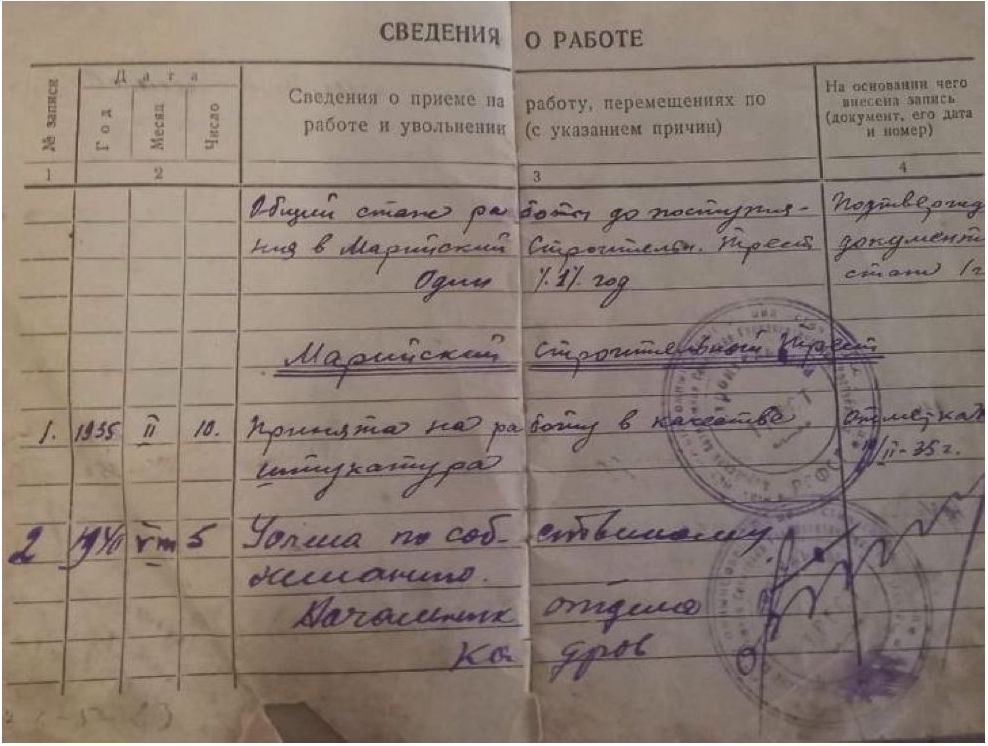 СВЕДЕНИЯ О РАБОТЕ
№ записи
Дата
Год
Месяц
Число
Сведения о приеме на работу, перемещениях по
работе и увольнении (с указанием причин)
На основании чего
внесена запись
(документ, его дата
и номер)
1 2 3 4
Общий стаж работы до поступле- Подтвержд
ния в Марийский Строительн. Трест документ
Один /1/ год стаж 1 г
Марийский Строительный Трест
1. 1935 II 10. Принята на работу в качестве отметка
штукатура II-35 г.
2 1940 VIII 5 Уошла по собственному
желанию.
Начальник отдела
Кадров